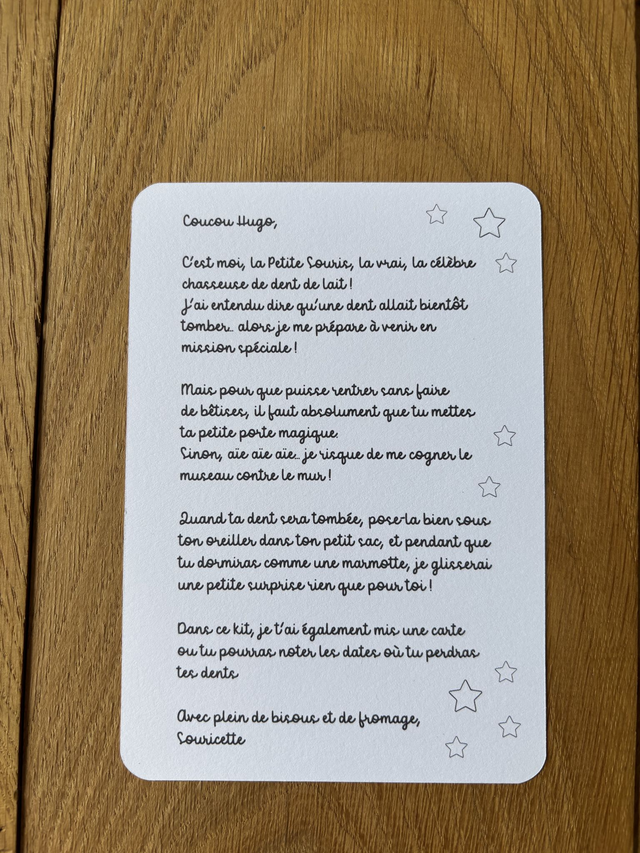 Coucou Hugo,
C'est moi, la Petite Souris, la vrai, la célèbre
chasseuse de dent de lait !
J'ai entendu dire qu'une dent allait bientôt
tomber... alors je me prépare à venir en
mission spéciale !
Mais pour que puisse rentrer sans faire
de bêtises, il faut absolument que tu mettes
ta petite porte magique.
Sinon, aïe aïe aïe... je risque de me cogner le
museau contre le mur !
Quand ta dent sera tombée, pose-la bien sous
ton oreiller dans ton petit sac, et pendant que
tu dormiras comme une marmotte, je glisserai
une petite surprise rien que pour toi !
Dans ce kit, je t'ai également mis une carte
ou tu pourras noter les dates où tu perdras
tes dents
Avec plein de bisous et de fromage,
Souricette